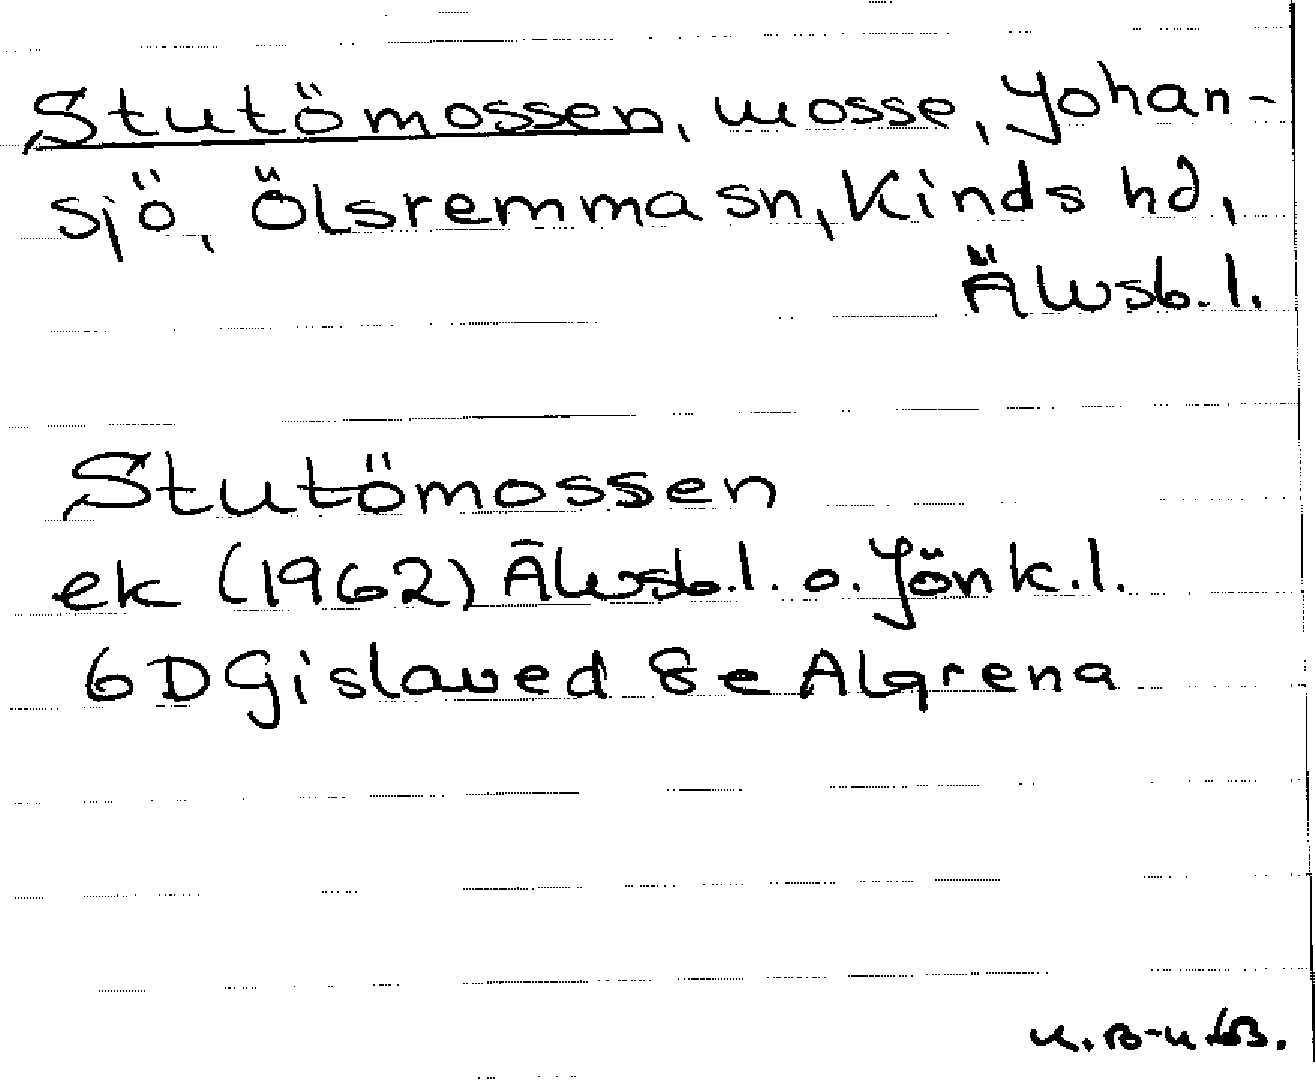 Stutömossen, mosse, Johan-
sjö, Ölsremma sn, Kinds hd,
Älvsb. l.
Stutömossen
ek (1962) Älvsb. l. o. Jönk. l.
6D Gislaved 8e Algrena